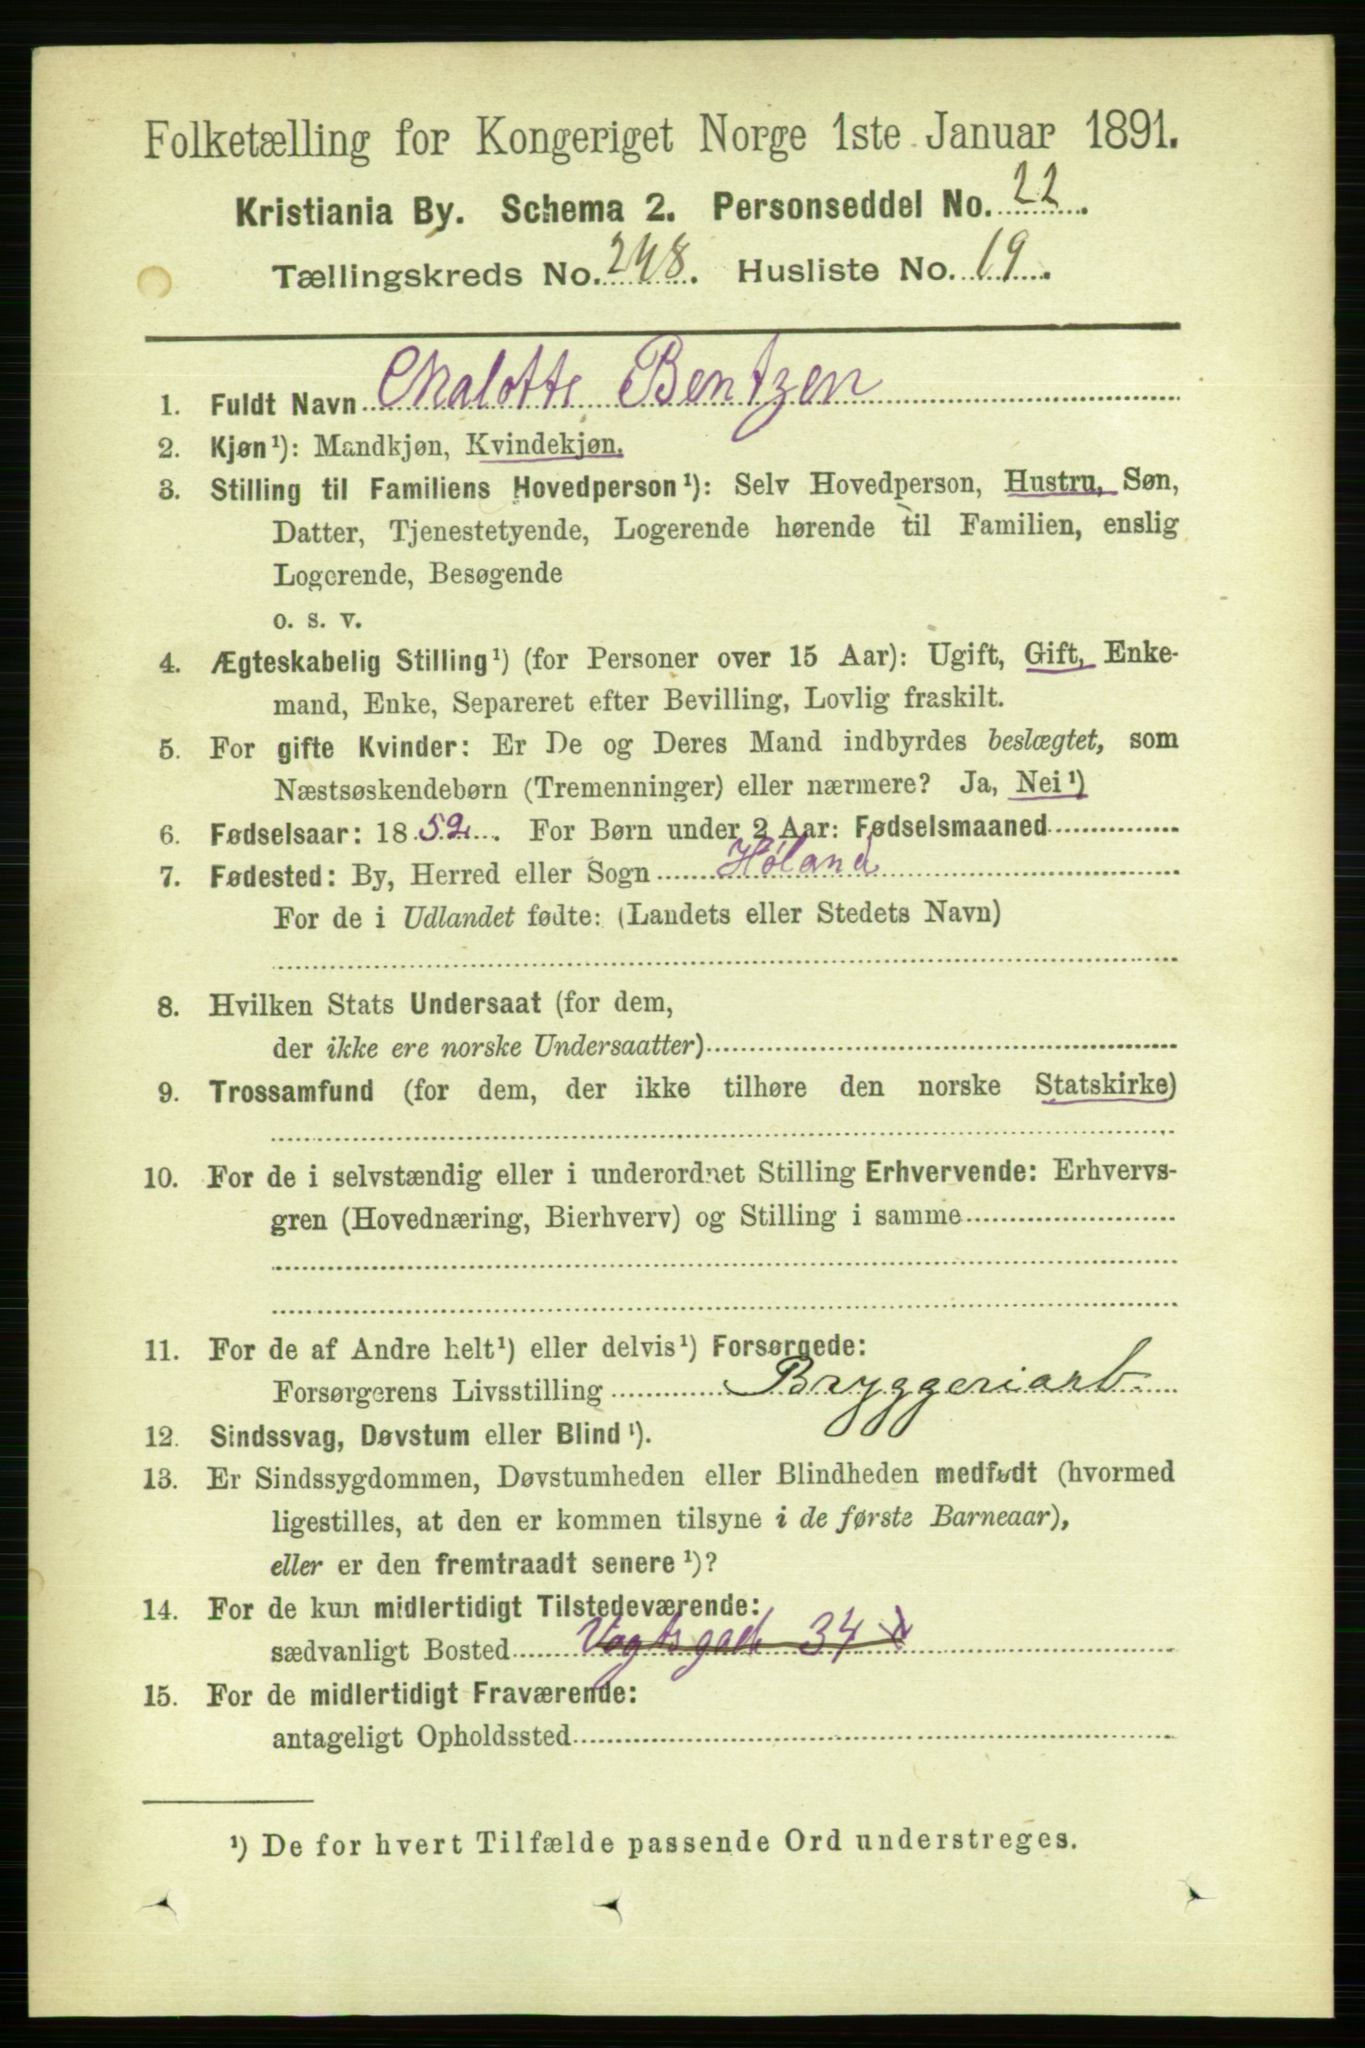 Folketælling for Kongeriget Norge 1ste Januar 1891.
Kristiania By. Schema 2. Personseddel No. 22.
Tællingskreds No. 248. Husliste No. 19.
1. Fuldt Navn Chalotte Bentzen
2. Kjøn¹): Mandkjøn, Kvindekjøn.
3. Stilling til Familiens Hovedperson¹): Selv Hovedperson, Hustru, Søn,
Datter, Tjenestetyende, Logerende hørende til Familien, enslig
Logerende, Besøgende
o. s. v.
4. Ægteskabelig Stilling¹) (for Personer over 15 Aar): Ugift, Gift, Enke-
mand, Enke, Separeret efter Bevilling, Lovlig fraskilt.
5. For gifte Kvinder: Er De og Deres Mand indbyrdes beslægtet, som
Næstsøskendebørn (Tremenninger) eller nærmere? Ja, Nei¹)
6. Fødselsaar: 1852. For Børn under 2 Aar: Fødselsmaaned
7. Fødested: By, Herred eller Sogn Høland
For de i Udlandet fødte: (Landets eller Stedets Navn)
8. Hvilken Stats Undersaat (for dem,
der ikke ere norske Undersaatter)
9. Trossamfund (for dem, der ikke tilhøre den norske Statskirke)
10. For de i selvstændig eller i underordnet Stilling Erhvervende: Erhvervs-
gren (Hovednæring, Bierhverv) og Stilling i samme
11. For de af Andre helt¹) eller delvis¹) Forsørgede:
Forsørgerens Livsstilling Bryggeriarb.
12. Sindssvag, Døvstum eller Blind¹).
13. Er Sindssygdommen, Døvstumheden eller Blindheden medfødt (hvormed
ligestilles, at den er kommen tilsyne i de første Barneaar),
eller er den fremtraadt senere¹)?
14. For de kun midlertidigt Tilstedeværende:
sædvanligt Bosted Vogtsgade 34
15. For de midlertidigt Fraværende:
antageligt Opholdssted
¹) De for hvert Tilfælde passende Ord understreges.